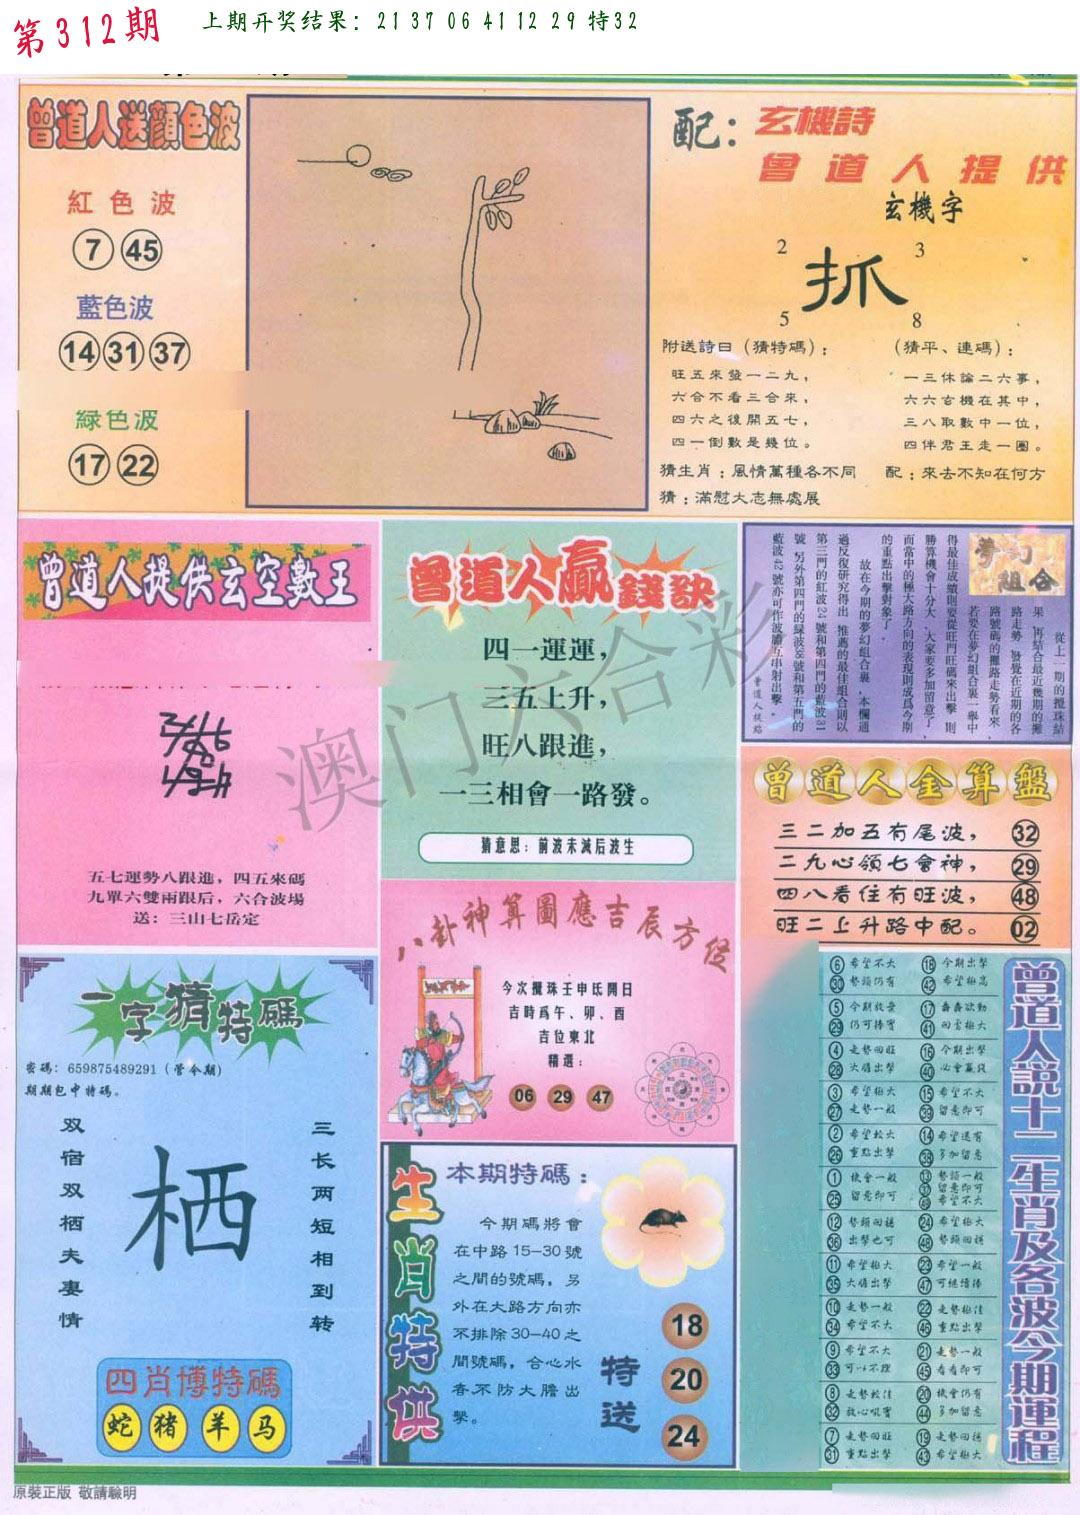 第312期
上期开奖结果：21 37 06 41 12 29 特32
曾道人送顏色波
紅色波
7 45
藍色波
14 31 37
緑色波
17 22
配：玄機詩
曾道人提供
玄機字
2 3
抓
5 8
附送詩曰（猜特碼）：
旺五來發一二九，
六合不看三合來，
四六之後開五七，
四一倒數是幾位。
（猜平、連碼）：
一三休論二六事，
六六玄機在其中，
三八取數中一位，
四伴君王走一圈。
猜生肖：風情萬種各不同
配：來去不知在何方
猜：滿慰大志無處展
曾道人提供玄空數王
五七運勢八跟進，四五來碼
九單六雙兩跟后，六合波場
送：三山七岳定
曾道人贏錢訣
四一運運，
三五上升，
旺八跟進，
一三相會一路發。
猜意思：前波未滅后波生
夢幻組合
從上一期的攪珠結
果，再結合最近幾期的攤
路走勢，發覺在近期的各
路號碼的攤路走勢看來，
若要在夢幻組合裏一舉中
得最佳成績則要從旺門旺碼來出擊，則
勝算機會十分大，大家要多加留意了，
而當中的極大路方向的表現則成爲今期
的重點出擊對象了。
故在今期的夢幻組合裏，本欄通
過反復研究得出，推薦的最佳組合則以
第三門的紅波24號和第四門的藍波31
號，另外第四門的緑波38號和第五門的
藍波42號亦可作波膽互串射出擊。
曾道人提點
曾道人金算盤
三二加五有尾波， 32
二九心領七會神， 29
四八看住有旺波， 48
旺二上升路中配。 02
八卦神算圖應吉辰方位
今次攪珠壬申氐開日
吉時爲午、卯、酉
吉位東北
精選：
06 29 47
一字猜特碼
密碼：659875489291（管今期）
期期包中特碼。
双宿双栖夫妻情
栖
三长两短相到转
四肖博特碼
蛇 猪 羊 马
生肖特供
本期特碼：
今期碼將會
在中路15-30號
之間的號碼，另
外在大路方向亦
不排除30-40之
間號碼，合心水
者不防大膽出
擊。
特送
18
20
24
曾道人説十二生肖及各波今期運程
6 希望不大 18 今期出擊
30 勢頭仍有 42 希望極高
5 今期收棄 17 蠢蠢欲動
29 仍可捧實 41 回雲極大
4 走勢回旺 16 今期出擊
28 大膽出擊 40 必會贏錢
3 希望極大 15 希望不大
27 走勢一般 39 留意即可
2 希望較大 14 希望還有
26 重點出擊 38 多加留意
1 機會一般 13 勢頭一般
25 留意即可 37 留意即可
49 希望不大
12 勢頭回穩 24 希望極大
36 出擊也可 48 勢頭回穩
11 希望極大 23 希望一般
35 大膽出擊 47 可繼續捧
10 走勢一般 22 走勢極佳
34 希望不大 46 重點出擊
9 希望不大 21 走勢一般
33 可以不理 45 看看即可
8 走勢較佳 20 機會仍有
32 放心吼實 44 多加留意
7 走勢回旺 19 走勢回穩
31 重點出擊 43 希望極大
澳门六合彩
原裝正版 敬請驗明